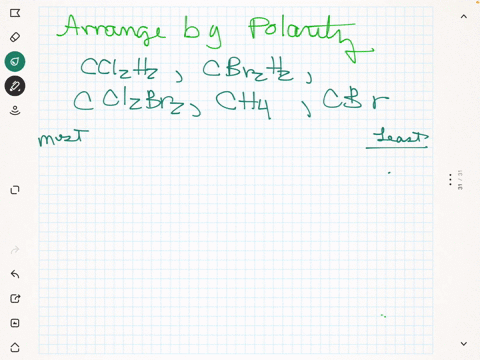 Arrange by Polarity
CCl2H2, CBr2H2,
CCl2Br2, CH4, CBr
most
Least
31/31